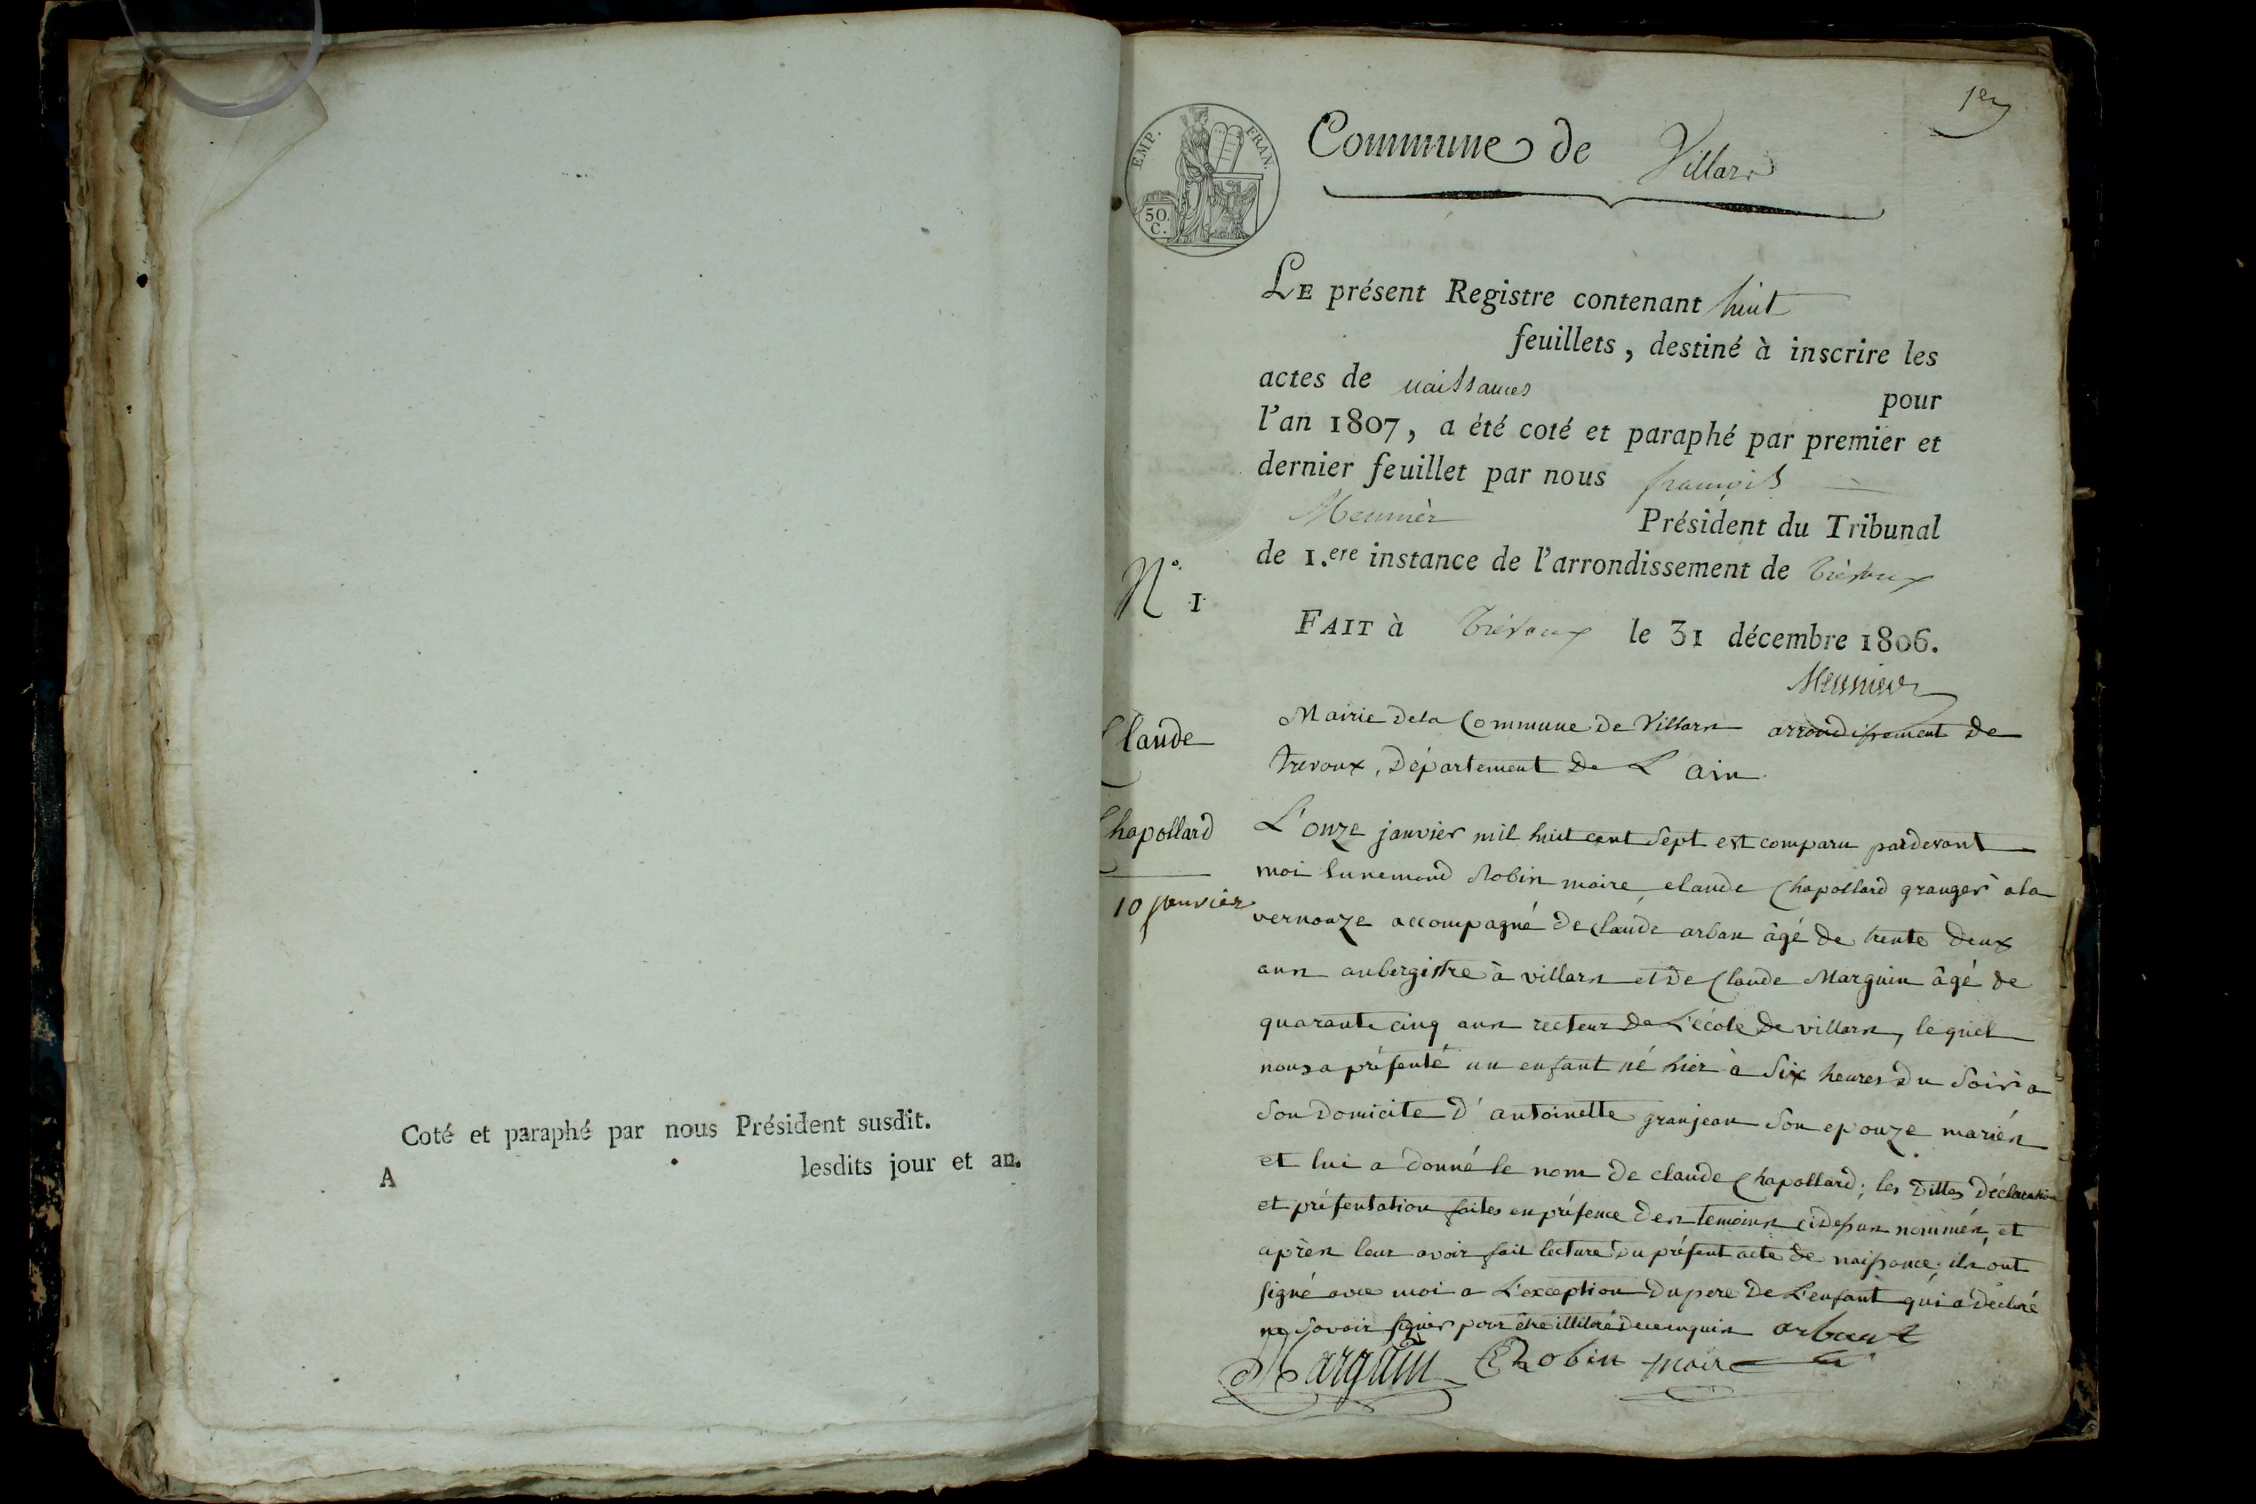 Coté et paraphé par nous Président susdit.
A lesdits jour et an.
1er
EMP. FRAN.
50. C.
Commune de Villars
LE présent Registre contenant huit
feuillets, destiné à inscrire les
actes de naissances pour
l'an 1807, a été coté et paraphé par premier et
dernier feuillet par nous françois
Meunier Président du Tribunal
de 1.ere instance de l'arrondissement de Trévoux
FAIT à Trévoux le 31 décembre 1806.
Meunier
N° 1
Claude
Chapollard
10 janvier
Mairie dela Commune de Villars arrondissement de
trevoux, Département de L'ain.
L'onze janvier mil huit cent sept est comparu pardevant
moi Robin maire claude Chapollard granger ala
vernouze accompagné de Claude arban âgé de trente deux
ans aubergistre à villars et de Claude Marguin âgé de
quarante cinq ans recteur de L'école de villars, lequel
nous a présenté un enfant né hier à six heures du soir a
son domicile d'antoinette granjean son epouze mariés
et lui a donné le nom de claude Chapollard; les dittes déclaration
et présentation faites en présence des temoins cidessus nommés, et
après leur avoir fait lecture du présent acte de naissance. ils ont
signé avec moi a L'exception du pere de L'enfant qui a déclaré
ne savoir signer pour être illitéré de ce enquis arbant
Marguin Robin maire